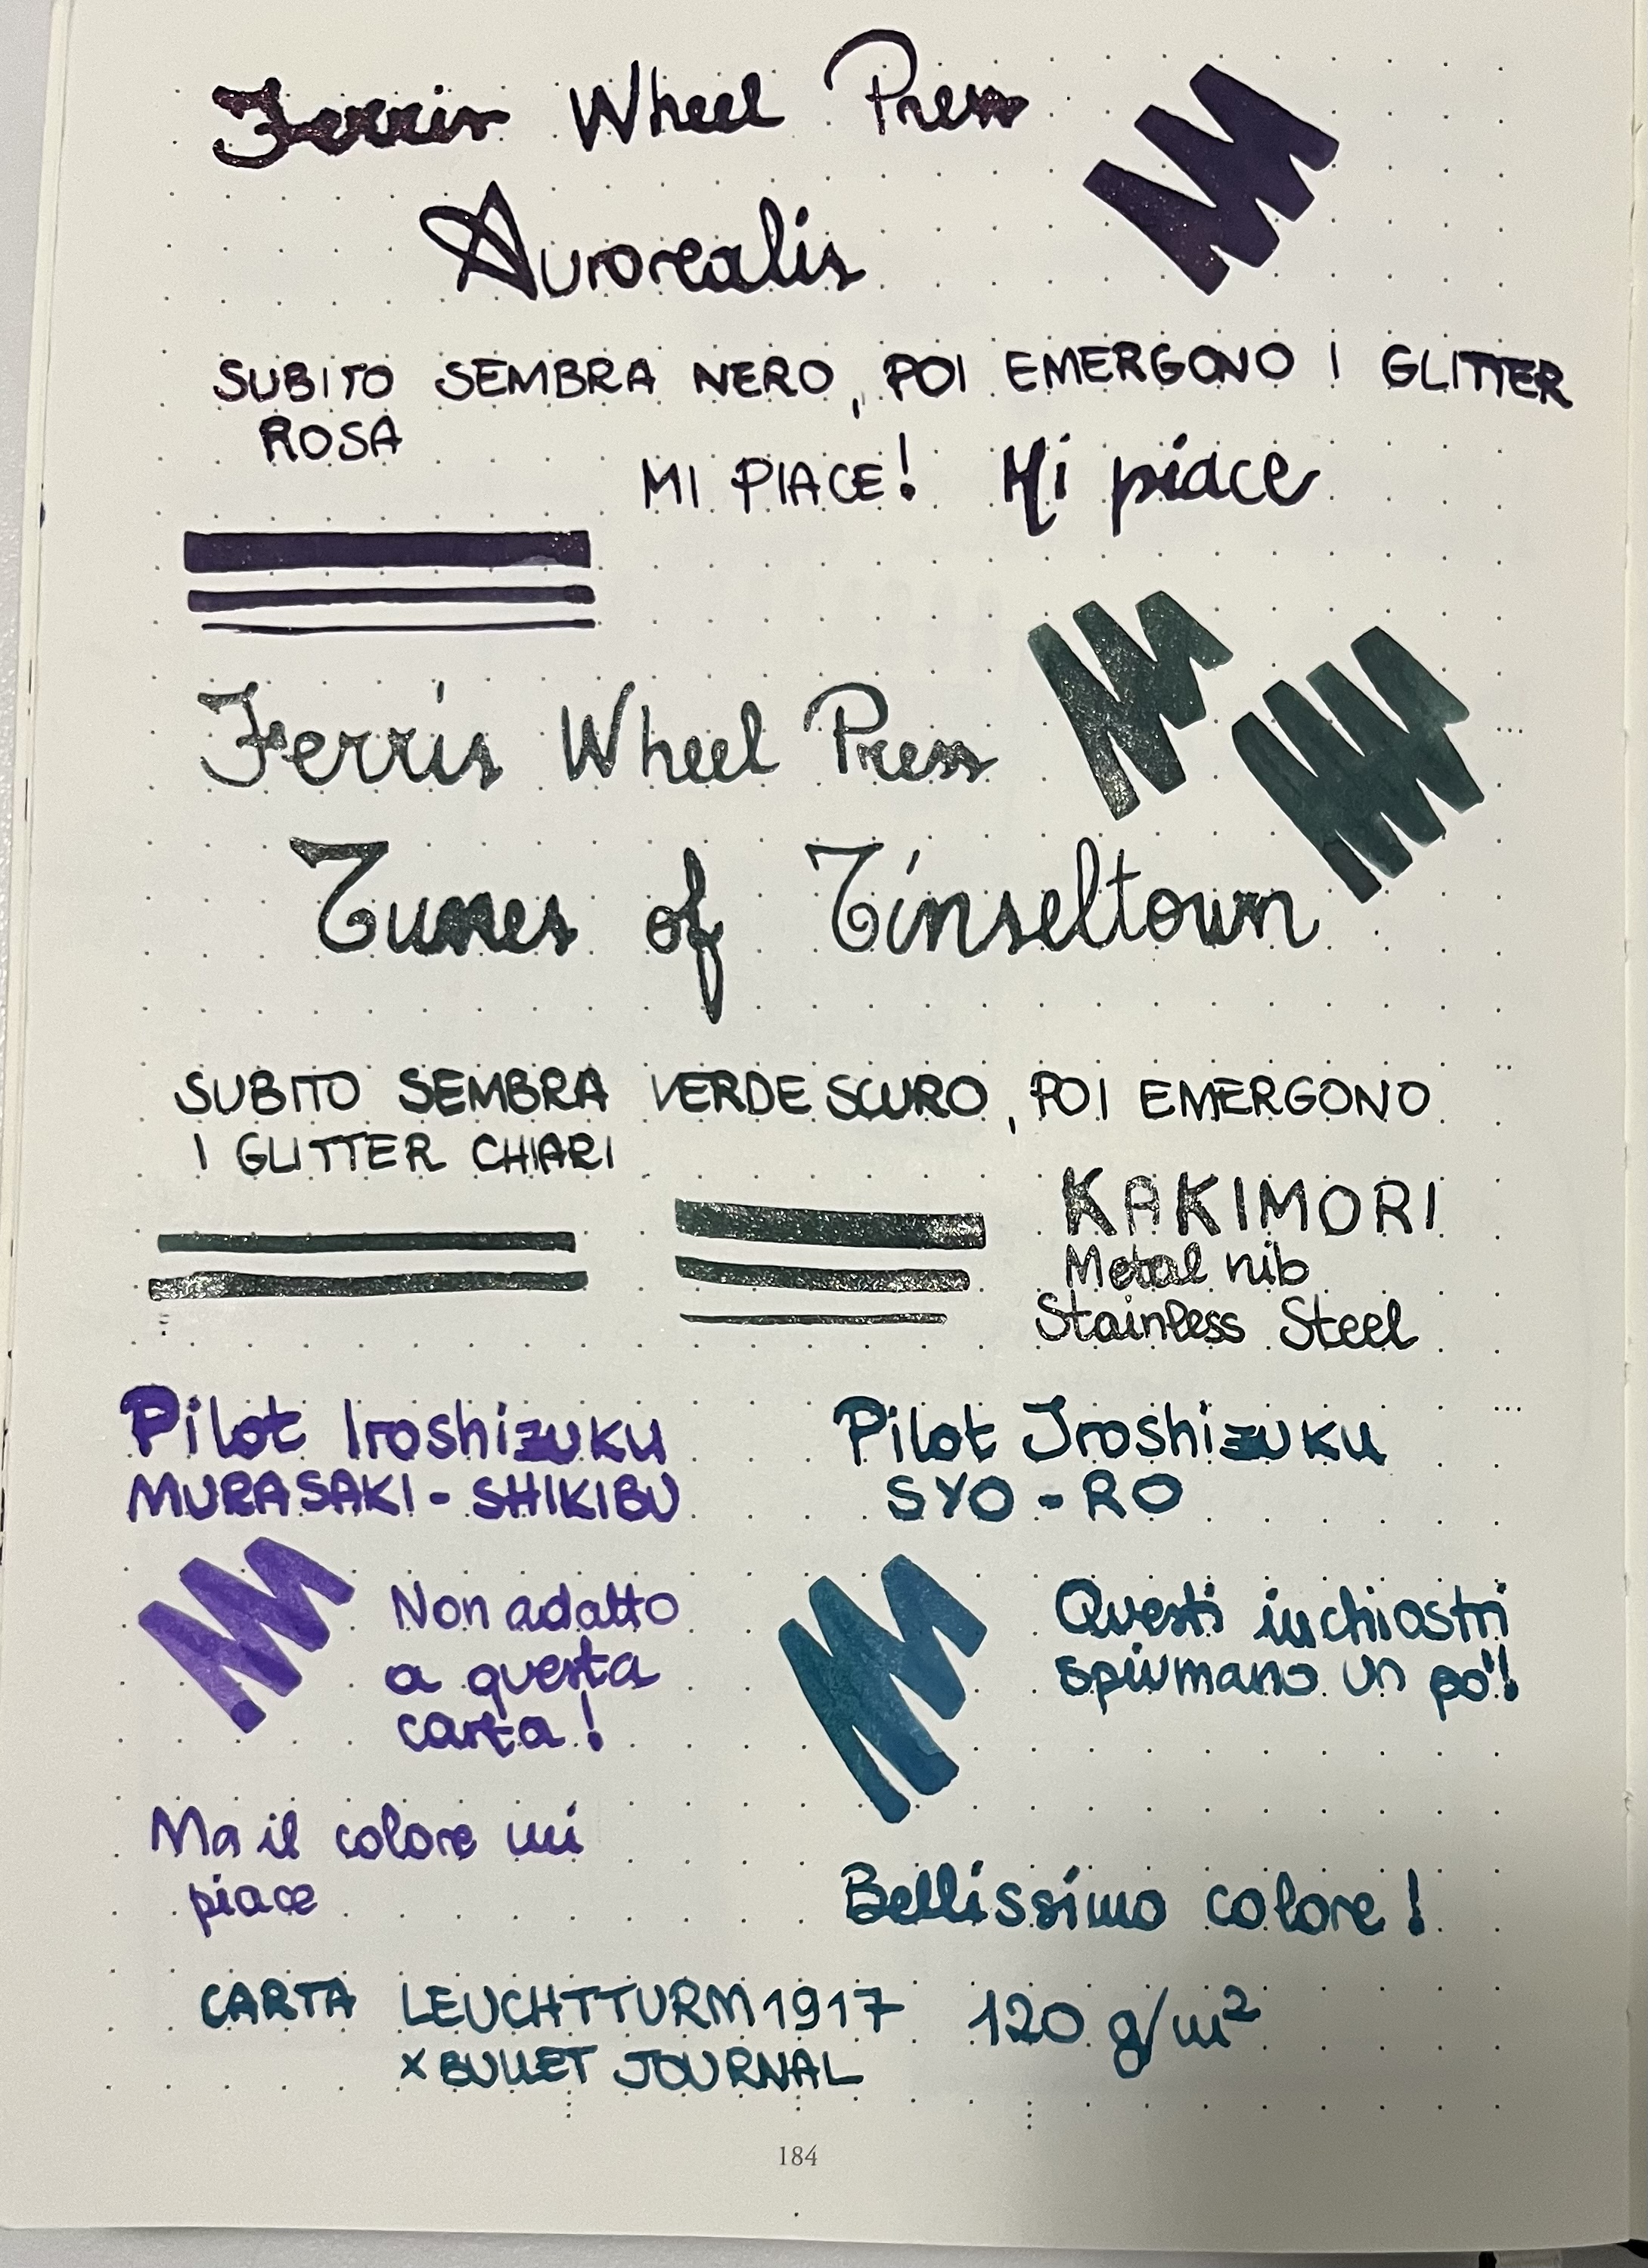 Ferris Wheel Press
Aurorealis
SUBITO SEMBRA NERO, POI EMERGONO I GLITTER
ROSA
MI PIACE! Mi piace
Ferris Wheel Press
Tunes of Tinseltown
SUBITO SEMBRA VERDE SCURO, POI EMERGONO
I GLITTER CHIARI
KAKIMORI
Metal nib
Stainless Steel
Pilot Iroshizuku
MURASAKI - SHIKIBU
Non adatto
a questa
carta!
Ma il colore mi
piace
Pilot Iroshizuku
SYO - RO
Questi inchiostri
spiumano un po'!
Bellissimo colore!
CARTA LEUCHTTURM1917 120 g/m²
x BULLET JOURNAL
184